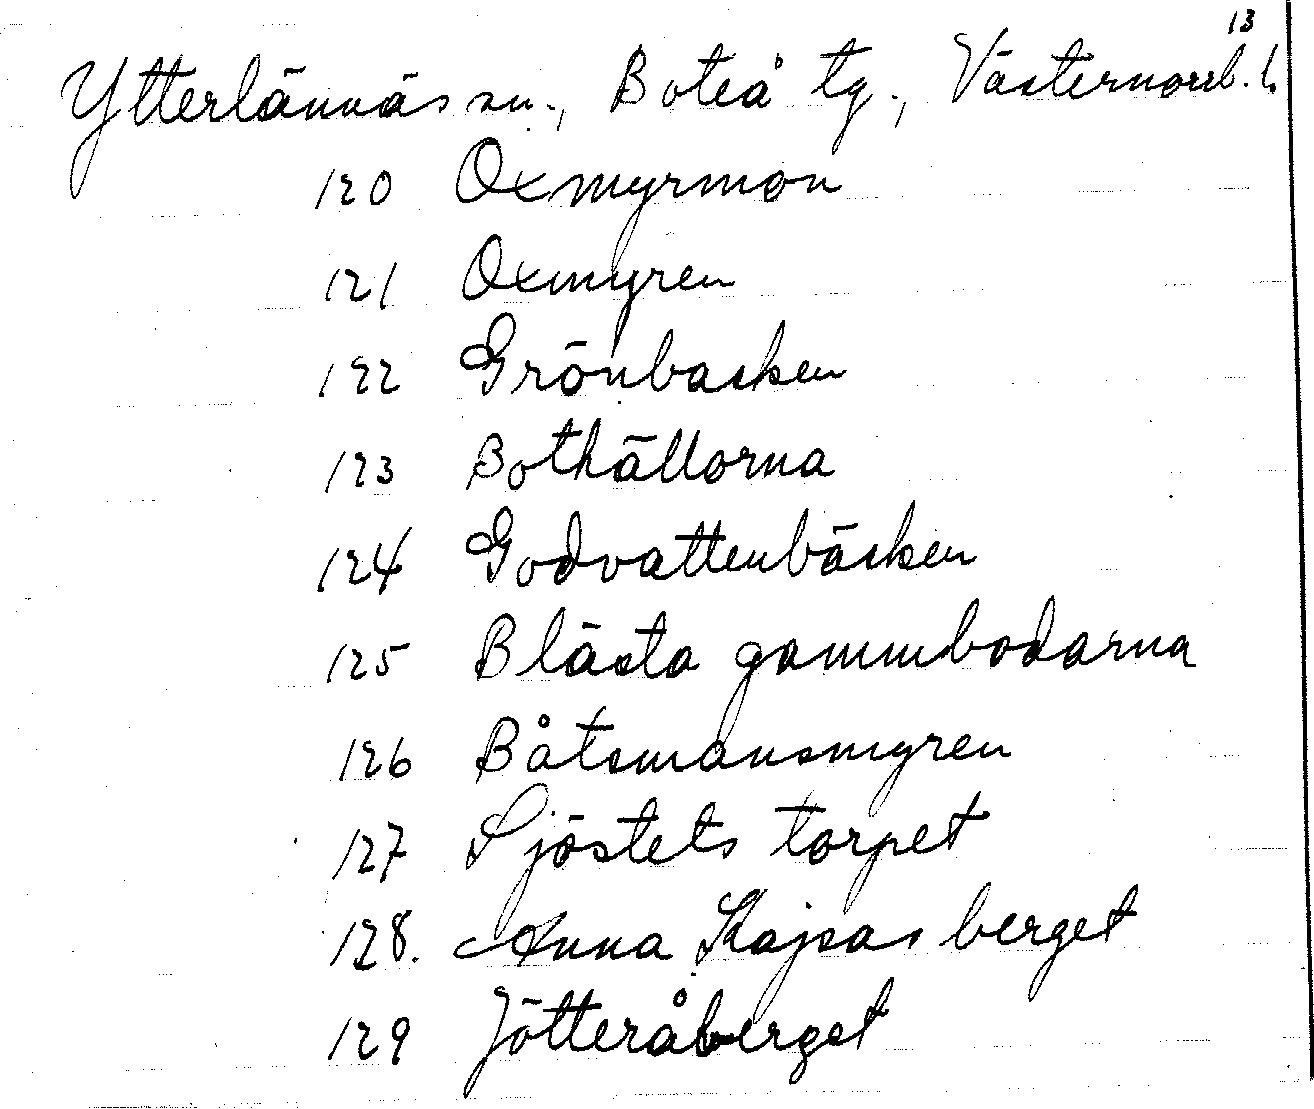 13
Ytterlännäs sn., Boteå tg., Västernorrl. l.
120 Oxmyrmon
121 Oxmyren
122 Grönbacken
123 Bothällorna
124 Godvattenbäcken
125 Blästa gammbodarna
126 Båtsmansmyren
127 Sjöstets torpet
128. Anna Kajsas berget
129 Jötteråberget